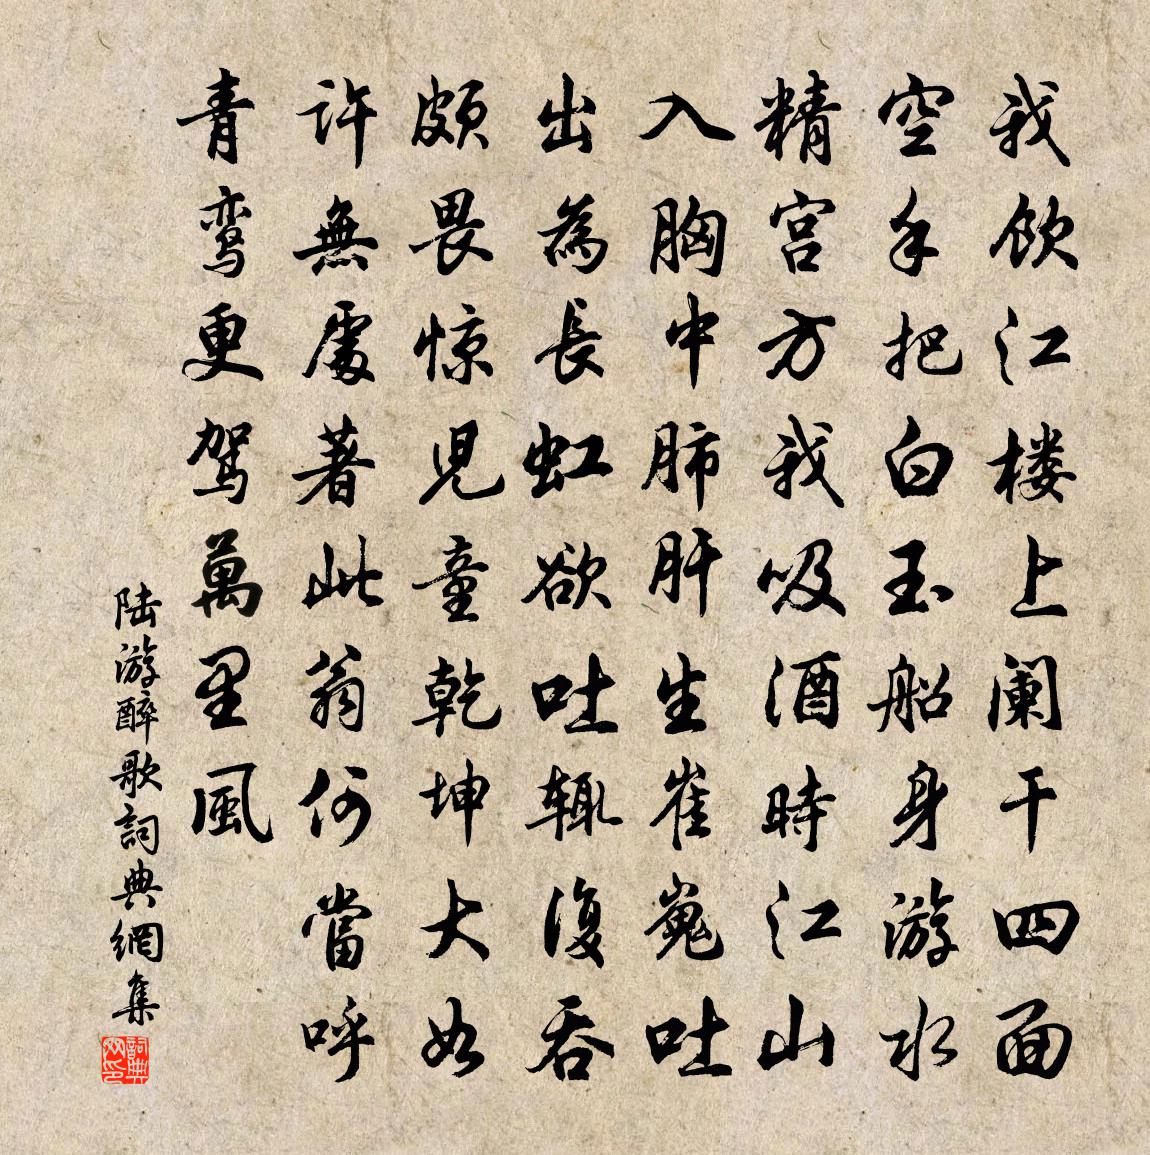 我飲江楼上阑干四面
空手把白玉船身游水
精宫方我吸酒時江山
入胸中肺肝生崔嵬吐
出為長虹欲吐辄復吞
颇畏惊児童乾坤大如
許無處著此翁何當呼
青鸾更驾萬里風
陆游醉歌詞典網集
詞典
网印